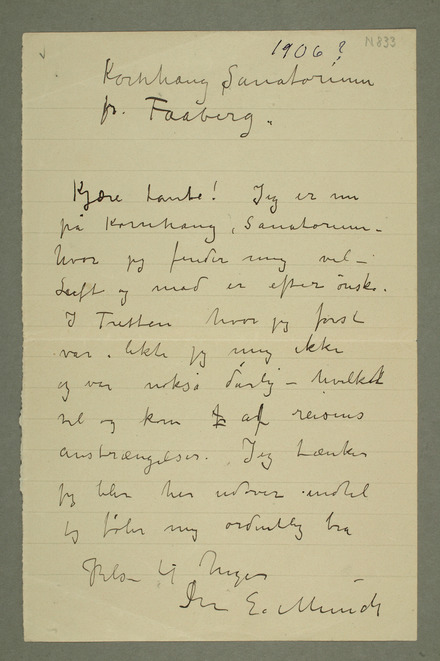 1906?
N 833
Kornhaug Sanatorium
pr. Faaberg.
Kjære tante! Jeg er nu
på Kornhaug, Sanatorium –
hvor jeg finder mig vel –
Luft og mad er efter ønske.
I Tretten hvor jeg først
var. likte jeg mig ikke
og var nokså dårlig – hvilket
vel og kom af reisens
anstrængelser. Jeg tænker
jeg blir her udover indtil
jeg føler mig ordentlig bra
Hils Inger –
Din E. Munch